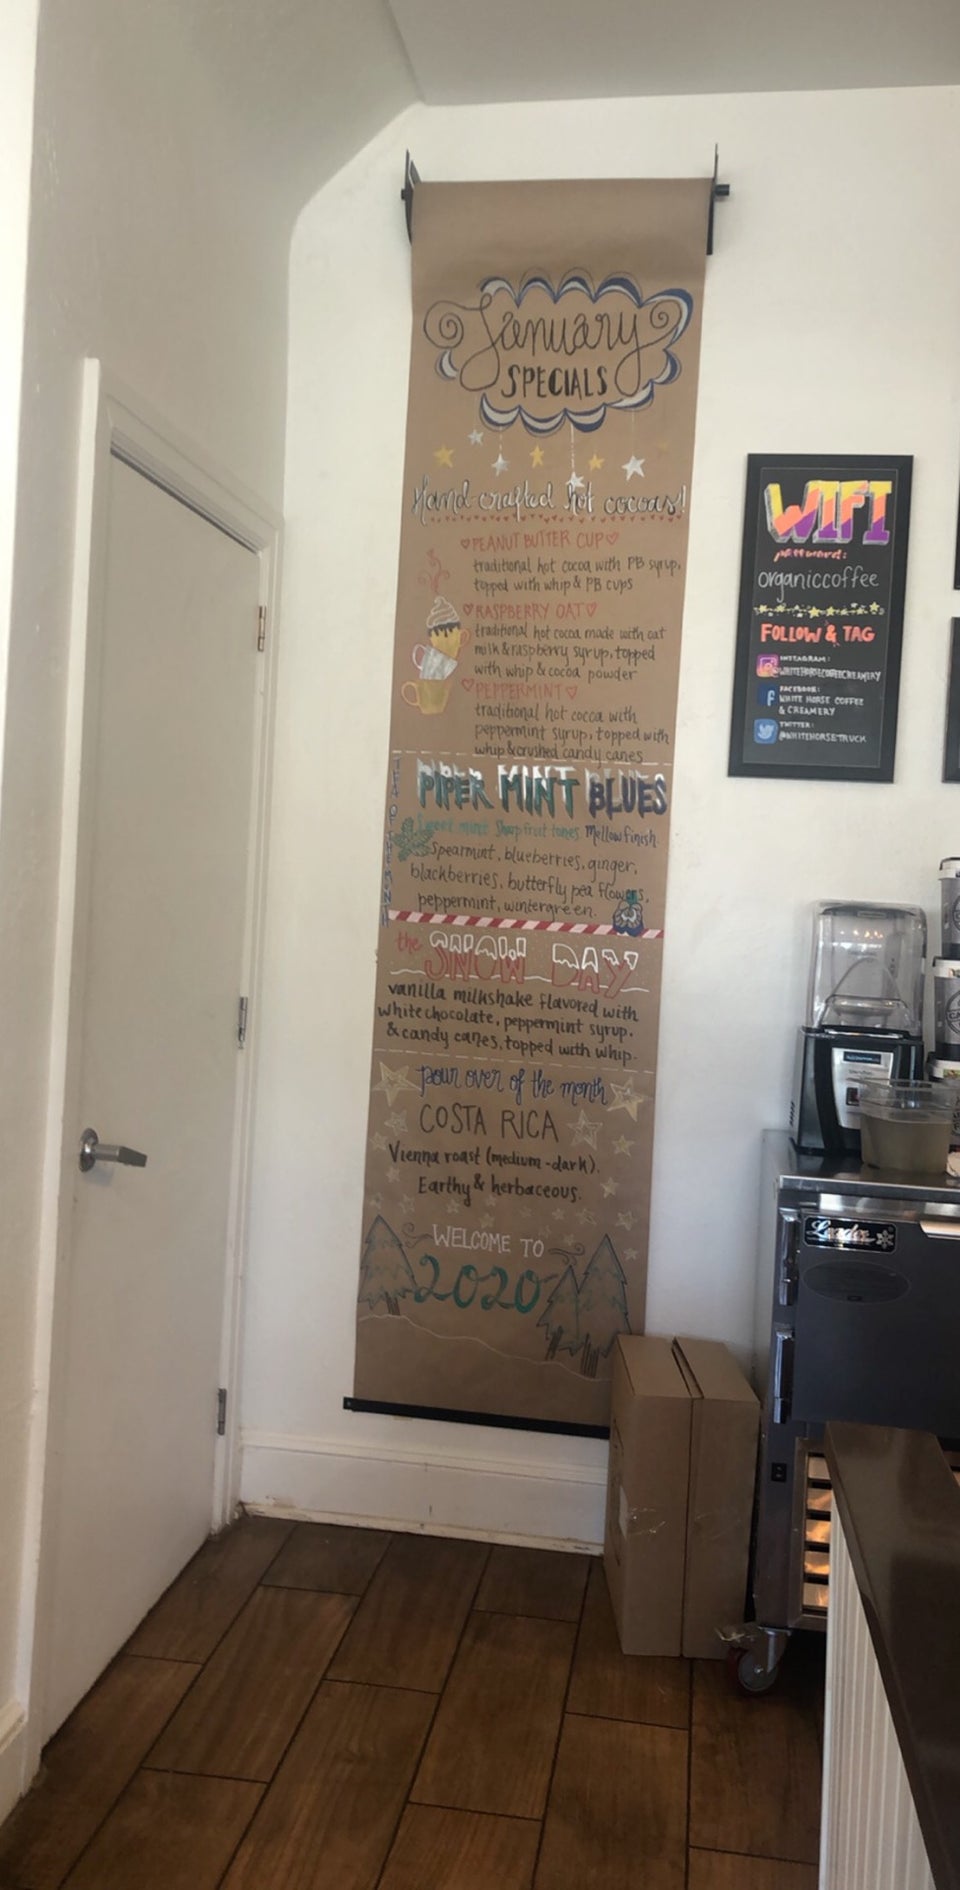 January
SPECIALS
Hand-crafted hot cocoas!
PEANUT BUTTER CUP
traditional hot cocoa with PB syrup,
topped with whip & PB cups
RASPBERRY OAT
traditional hot cocoa made with oat
milk & raspberry syrup, topped
with whip & cocoa powder
PEPPERMINT
traditional hot cocoa with
peppermint syrup, topped with
whip & crushed candy canes
TEA OF THE MONTH
PIPER MINT BLUES
Sweet mint Sharp fruit tones Mellow finish.
Spearmint, blueberries, ginger,
blackberries, butterfly pea flowers,
peppermint, wintergreen.
the SNOW DAY
vanilla milkshake flavored with
white chocolate, peppermint syrup,
& candy canes, topped with whip.
pour over of the month
COSTA RICA
Vienna roast (medium-dark).
Earthy & herbaceous.
WELCOME TO
2020
WIFI
password:
organiccoffee
FOLLOW & TAG
INSTAGRAM:
@WHITEHORSECOFFEECREAMERY
FACEBOOK:
WHITE HORSE COFFEE
& CREAMERY
TWITTER:
@WHITEHORSETRUCK